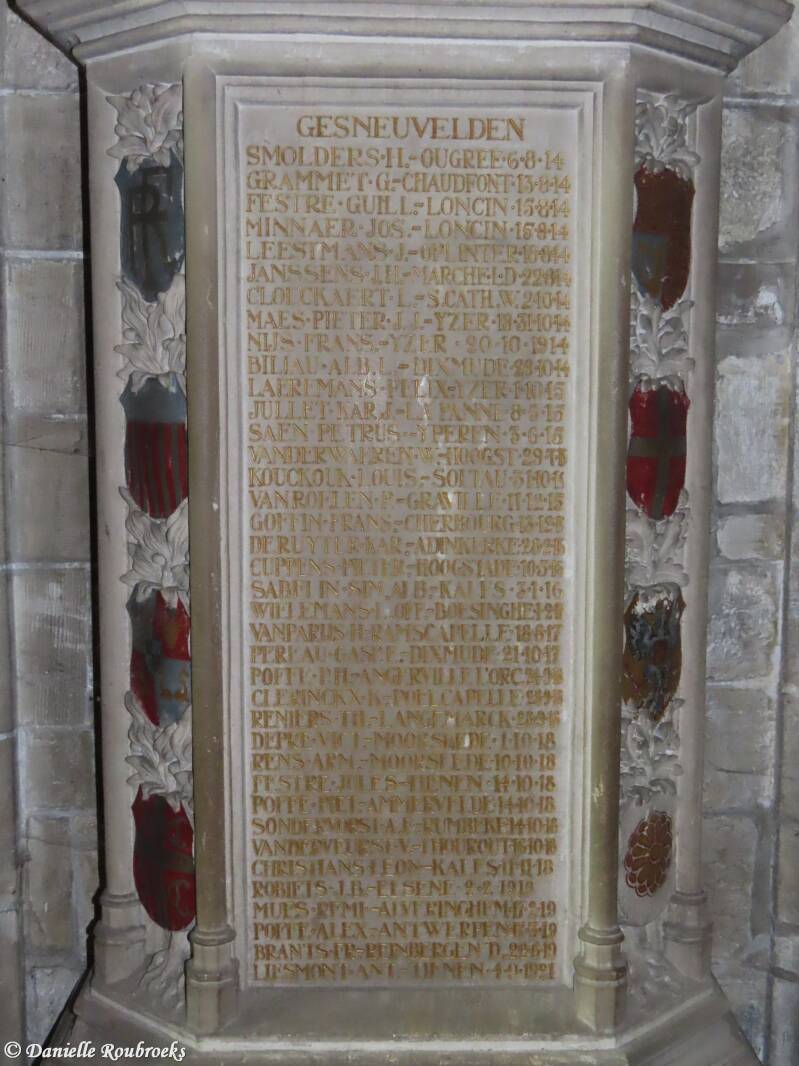 GESNEUVELDEN
SMOLDERS·H.-OUGREE·6·8·14
GRAMMET·G-CHAUDFONT·13·8·14
FESTRE·GUILL.-LONCIN·15·8·14
MINNAER·JOS.-LONCIN·15·8·14
LEESTMANS·J.-OPLINTER·18·8·14
JANSSENS·J.H.-MARCHE·L·D·22·8·14
CLOECKAERT·L.-S.CATH.W.
MAES·PIETER·J.J.-YZER·18·31·10·14
NIJS·FRANS.-YZER·20·10·1914
BILIAU·ALB.L.-DIXMUDE·28·10·14
LAEREMANS·FELIX-YZER·1·10·15
JULLET·KAR.J.-LA PANNE·8·5·15
SAEN PETRUS-YPEREN·3·6·15
VANDERWAEREN·W-HOOGST·29·7·15
KOUCKOUK·LOUIS.-SOLTAU·31·10·15
VANROELEN·P.-GRAVILLE·11·12·15
GOFFIN·FRANS.-CHERBOURG
DERUYTER·KAR.-ADINKERKE
CUPPENS·PIETER-HOOGSTADE·10·3·16
SABELIN·SIM.ALB-KALES·3·1·16
WIELEMANS·L.OFF-BOESINGHE
VANPARIJS·H·RAMSCAPELLE·18·6·17
PEREAU·GASP.E.-DIXMUDE·21·10·17
POFFE·P.H-ANGERVILLE L'ORC.
CLERINCKX·K-POELCAPELLE
RENIERS·TH.-LANGEMARCK
DEPRE·VICT-MOORSLEDE·1·10·18
RENS·ARM.-MOORSLEDE·10·10·18
FESTRE·JULES-TIENEN·14·10·18
POFFE·PIET-AMMERVELDE·14·10·18
SONDERVORST·A.F-RUMBEKE·14·10·18
VANDERVEURST·V-THOUROUT·16·10·18
CHRISTIANS·LEON-KALES·11·11·18
ROBIETS·J.B.-ELSENE·2·2·1919
MUES·REMI-ALVERINGHEM·17·2·19
POFFE·ALEX-ANTWERPEN
BRANTS·FR-REINBERGEN·D.22·6·19
LIESMONT·ANT-TIENEN·4·9·1921
© Danielle Roubroeks